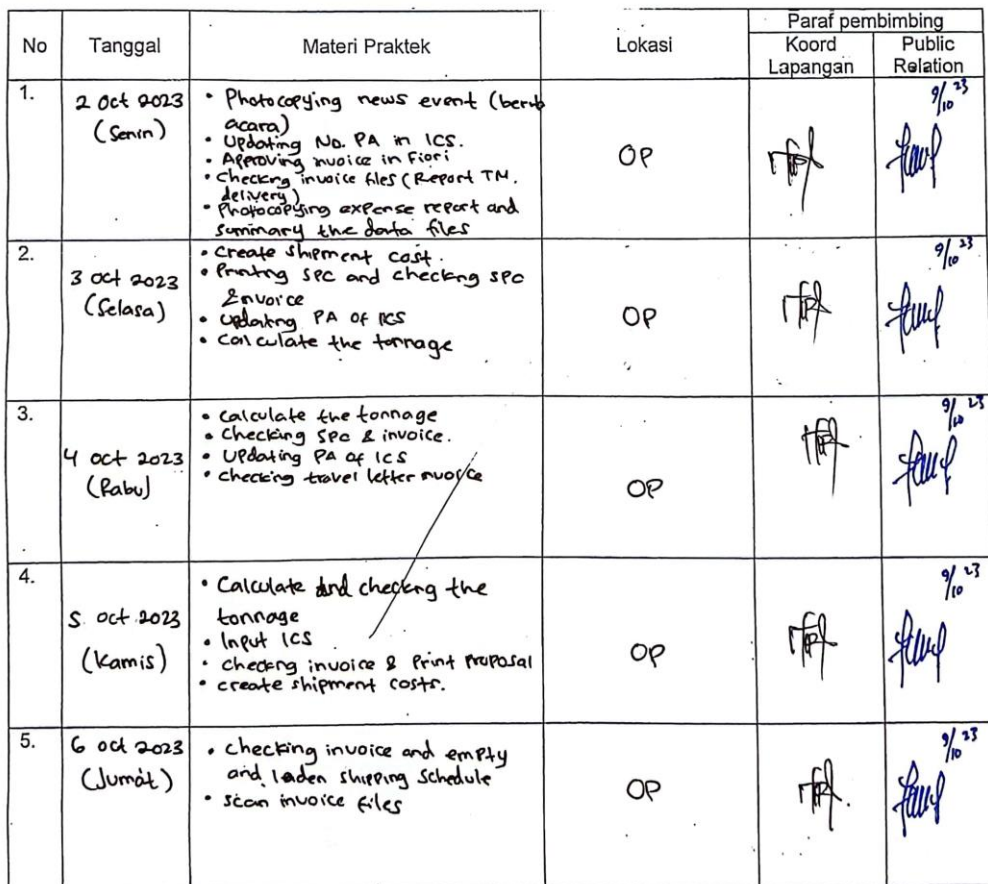 No Tanggal Materi Praktek Lokasi Paraf pembimbing
Koord Lapangan Public Relation
1.
2 Oct 2023
(Senin)
• Photocopying news event (berita
acara)
• Updating No. PA in ICS.
• Approving invoice in Fiori
• Checking invoice files (Report TM.
delivery)
• Photocopying expense report and
summary the data files
OP
9/10 23
2.
3 Oct 2023
(Selasa)
• Create shipment cost.
• Printing SPC and checking SPC
Invoice
• Updating PA of ICS
• Calculate the tonnage
OP
9/10 23
3.
4 Oct 2023
(Rabu)
• Calculate the tonnage
• Checking SPC & invoice.
• Updating PA of ICS
• Checking travel letter invoice
OP
9/10 23
4.
5 Oct 2023
(Kamis)
• Calculate and checking the
tonnage
• Input ICS
• Checking invoice & Print Proposal
• create shipment costs.
OP
9/10 23
5.
6 Oct 2023
(Jumat)
• Checking invoice and empty
and laden shipping schedule
• Scan invoice files
OP
9/10 23